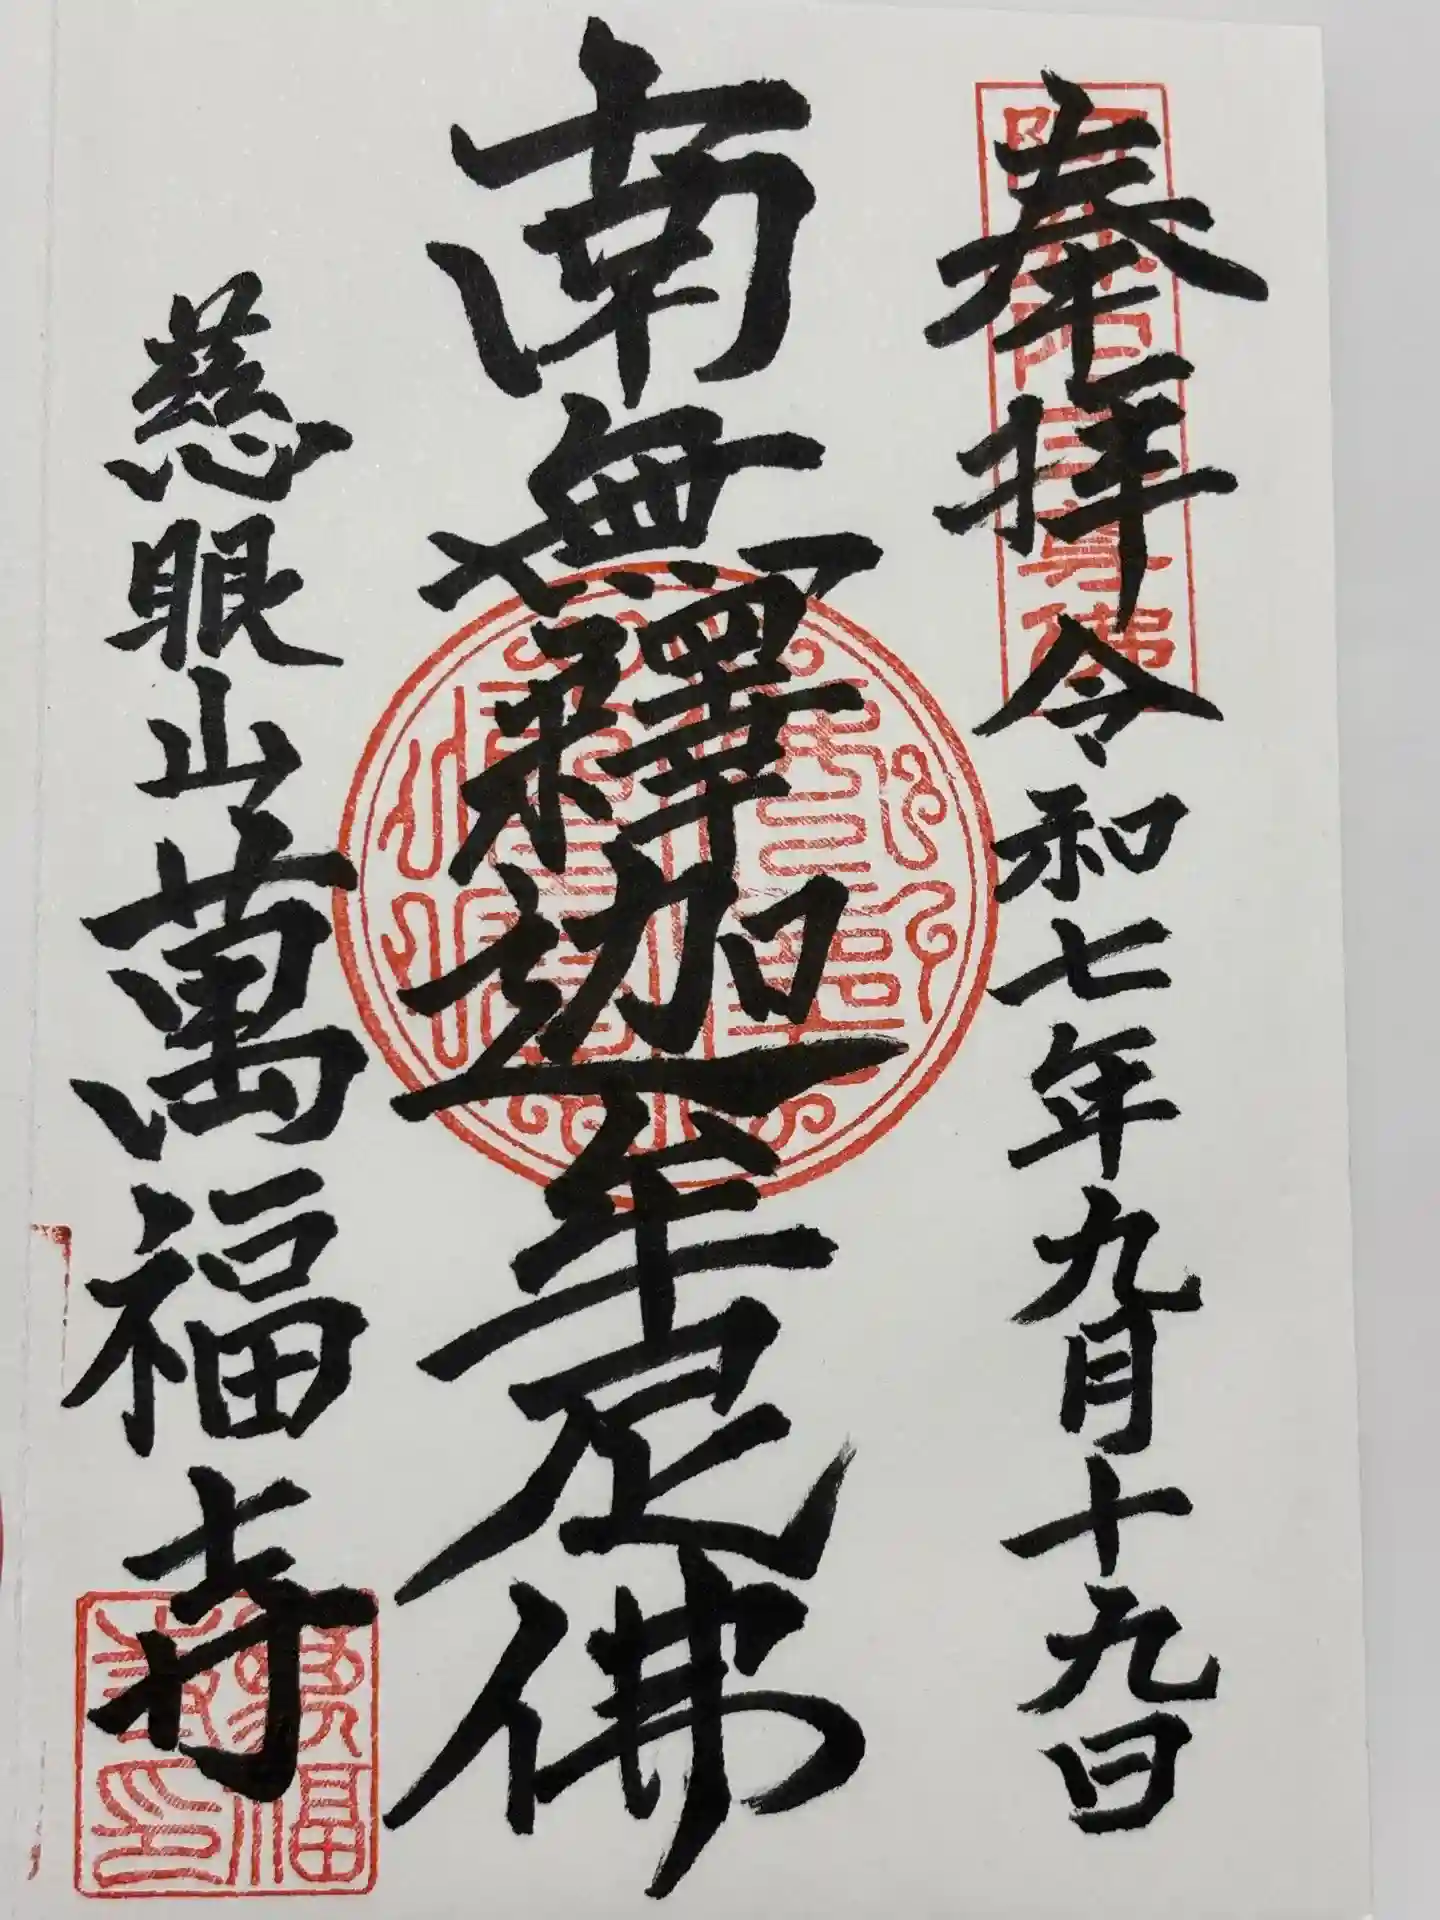 奉拝 令和七年九月十九日
南無釋迦牟尼佛
慈眼山萬福寺
萬福寺印